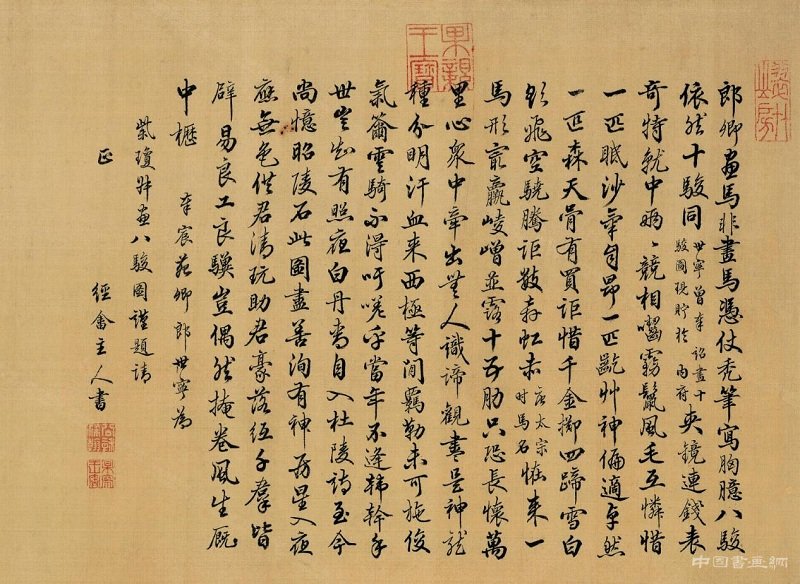 郎卿畫馬非畫馬憑仗禿筆寫胸臆八駿
依然十駿同世寧曾奉詔畫十駿圖現貯於內府爽鏡連錢表
奇特就中矯矯競相嘶霧鬣風毛互憐惜
一匹眠沙氣自昂一匹齕艸神偏適卓然
一匹森天骨有買詎惜千金擲四蹄雪白
欲飛空驍騰詎數赤虹赤唐太宗時馬名怪來一
馬形最羸崚嶒並露十五肋只恐長懷萬
里心眾中牽出無人識諦觀盡是神龍
種分明汗血來西極等閒羈勒未可施後
氣籋雲騎不得吁嗟乎當年不逢韓幹手
世豈知有照夜白丹青自入杜陵詩至今
尚憶昭陵石此圖盡善洵有神房星入夜
應無色供君清玩助君豪落紙千群皆
辟易良工良驥豈偶然掩卷風生厩
中櫪
奉宸苑卿郎世寧為
紫瓊畫八駿圖謹題請
正
經畬主人書
果親王寶
中国書画網